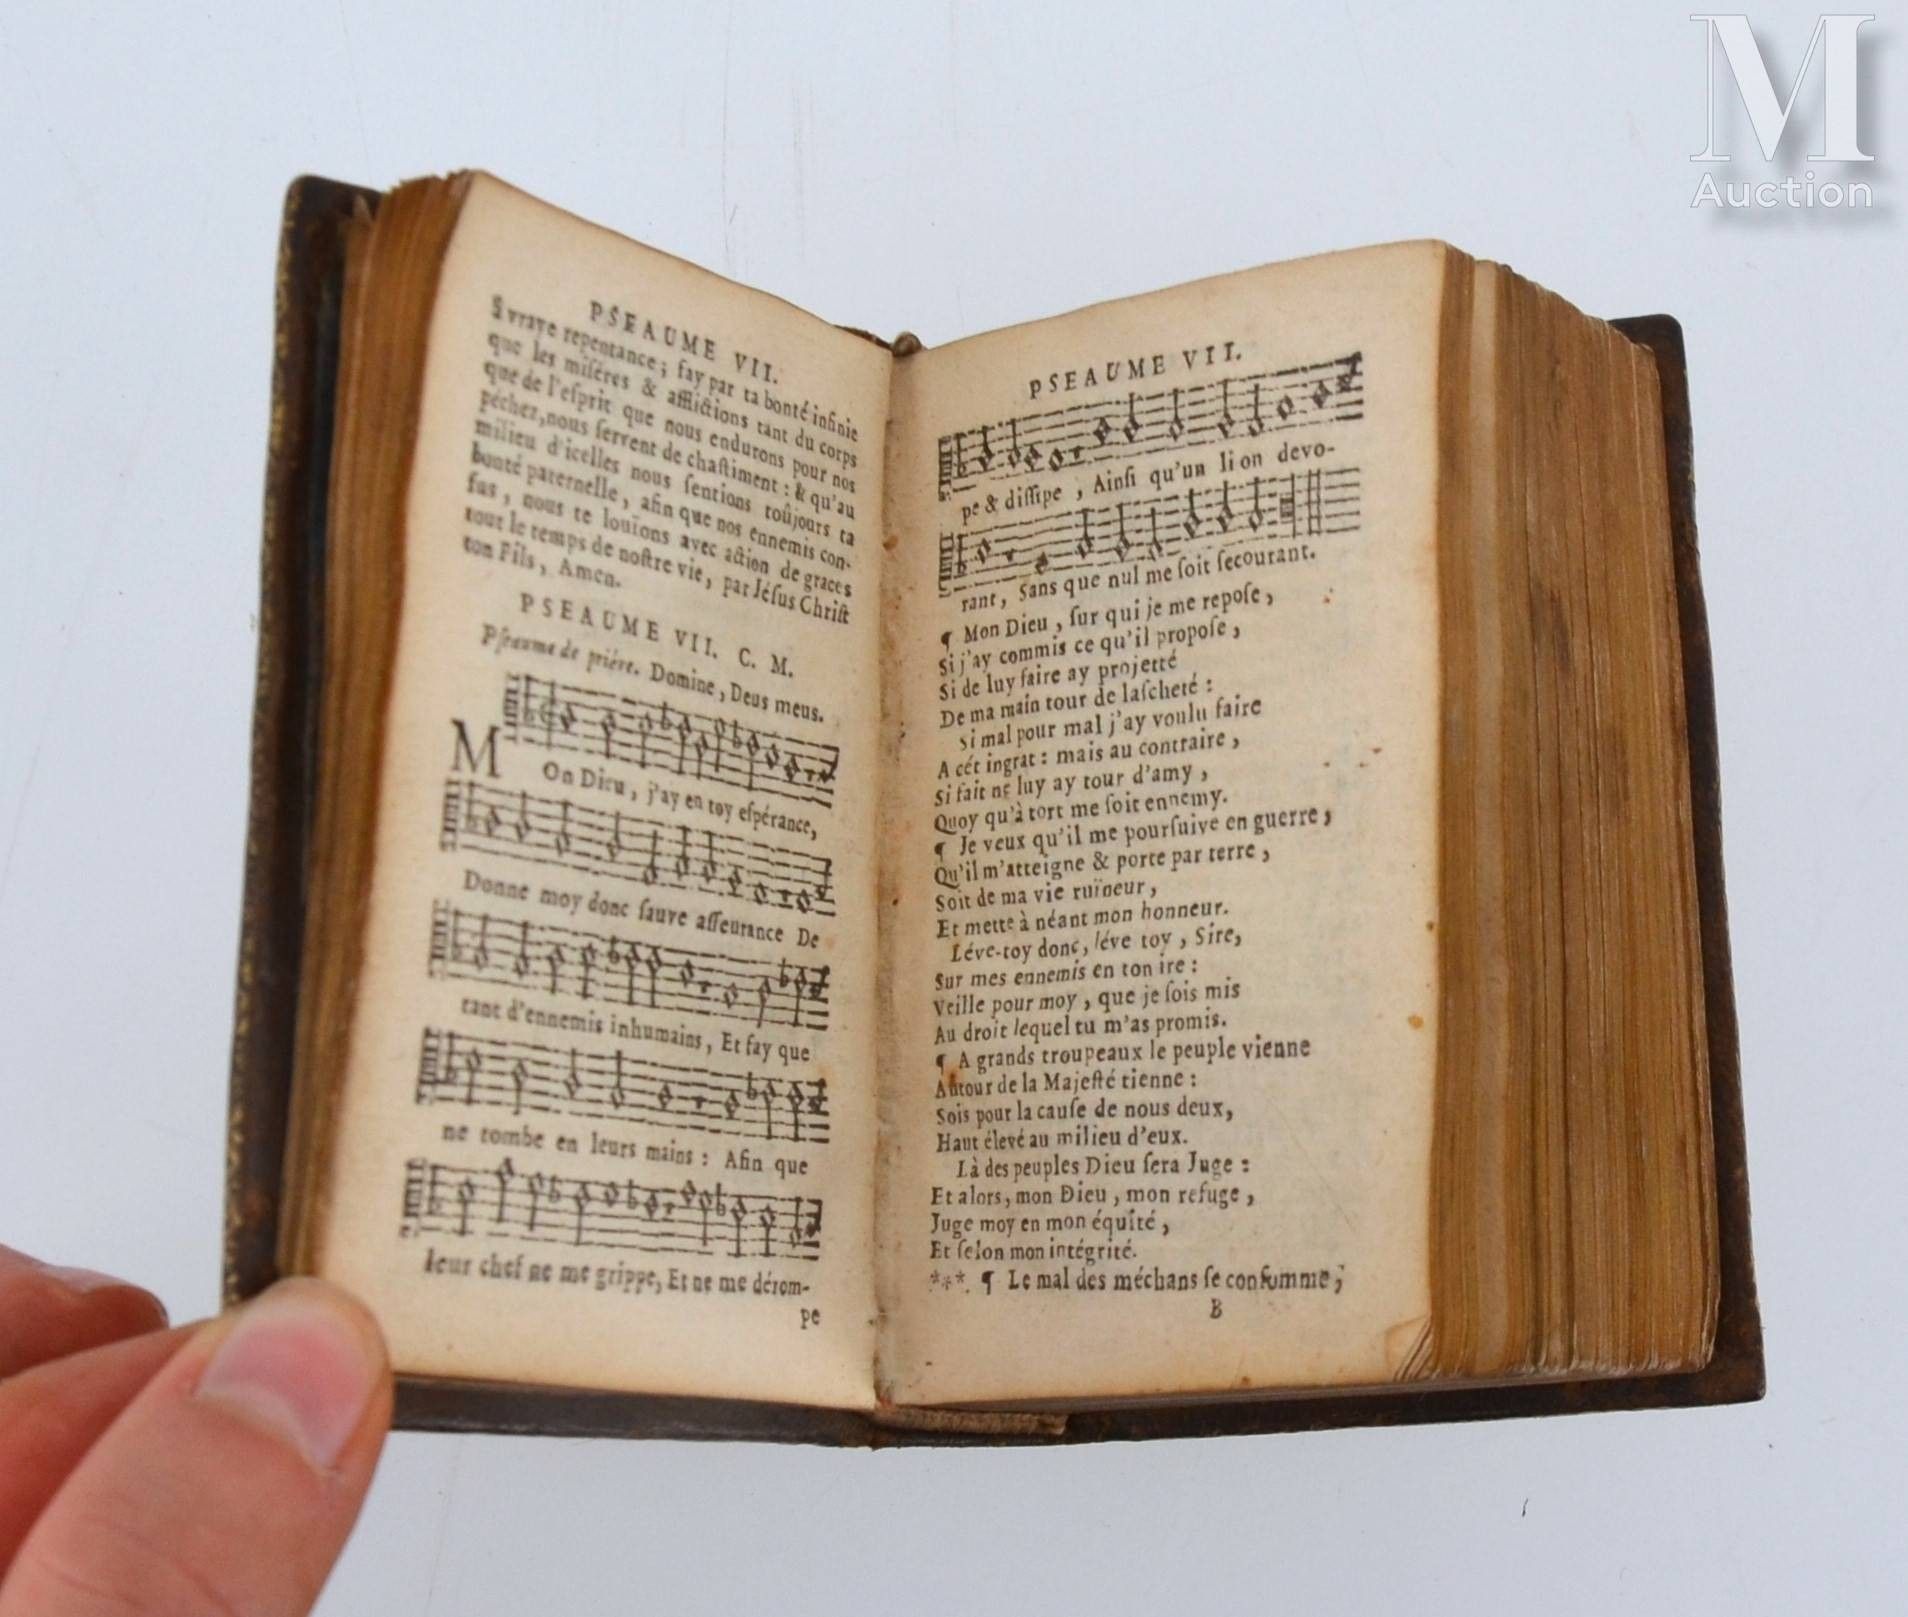 M
Auction
PSEAUME VII.
à vraye repentance ; fay par ta bonté infinie
que les miſéres & afflictions tant du corps
que de l'eſprit que nous endurons pour nos
péchez, nous ſervent de chaſtiment : & qu'au
milieu d'icelles nous ſentions toûjours ta
bonté paternelle, afin que nos ennemis con-
fus, nous te louïons avec action de graces
tout le temps de noſtre vie, par Jéſus Chriſt
ton Fils, Amen.
PSEAUME VII. C. M.
Pſeaume de priére. Domine, Deus meus.
MOn Dieu, j'ay en toy eſpérance,
Donne moy donc ſauve aſſeurance De
tant d'ennemis inhumains, Et fay que
ne tombe en leurs mains : Afin que
leur chef ne me grippe, Et ne me dérom-
pe
PSEAUME VII.
pe & diſſipe, Ainſi qu'un lion devo-
rant, Sans que nul me ſoit ſecourant.
¶ Mon Dieu, ſur qui je me repoſe,
Si j'ay commis ce qu'il propoſe,
Si de luy faire ay projetté
De ma main tour de laſcheté :
Si mal pour mal j'ay voulu faire
A cét ingrat : mais au contraire,
Si fait ne luy ay tour d'amy,
Quoy qu'à tort me ſoit ennemy.
¶ Je veux qu'il me pourſuive en guerre,
Qu'il m'atteigne & porte par terre,
Soit de ma vie ruïneur,
Et mette à néant mon honneur.
Léve-toy donc, léve toy, Sire,
Sur mes ennemis en ton ire :
Veille pour moy, que je ſois mis
Au droit lequel tu m'as promis.
¶ A grands troupeaux le peuple vienne
Autour de la Majeſté tienne :
Sois pour la cauſe de nous deux,
Haut élevé au milieu d'eux.
Là des peuples Dieu ſera Juge :
Et alors, mon Dieu, mon refuge,
Juge moy en mon équité,
Et ſelon mon intégrité.
***. ¶ Le mal des méchans ſe conſomme,
B